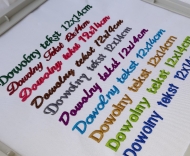 Dowolny tekst 12x14cm
Dowolny Tekst 8x14cm
Dowolny tekst 12x14cm
Dowolny tekst 12x14cm
Dowolny tekst 12x14cm
Dowolny tekst 12x14cm
Dowolny tekst 12x14cm
Dowolny tekst 12x14cm
Dowolny tekst 12x14cm
Dowolny tekst 12x14cm